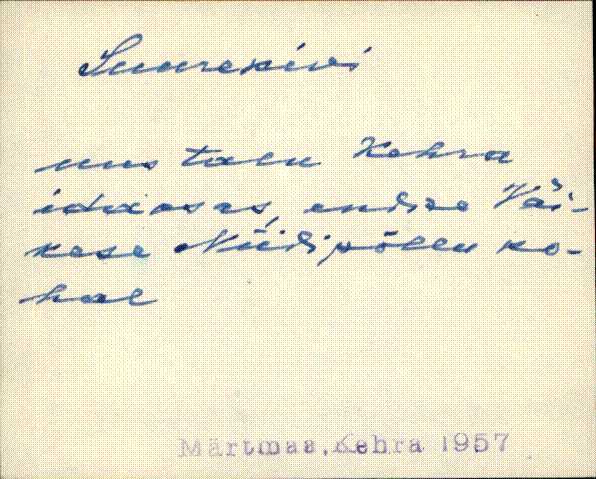 Suurekivi
uus talu Kehra
idaosas, endise Väi-
kese Niidipõllu ko-
hal
Märtmaa, Kehra 1957